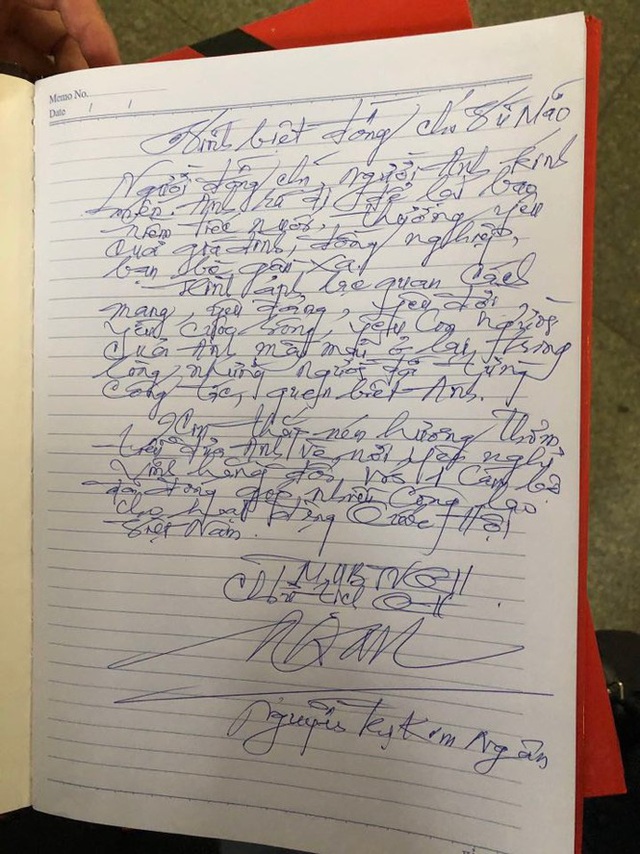 Memo No.
Date / /
Vĩnh biệt đồng chí Vũ Mão
Người đồng chí, người Anh kính
mến. Anh ra đi để lại bao
niềm tiếc nuối, thương yêu
của gia đình, đồng nghiệp,
bạn bè gần xa.
Hình ảnh lạc quan cách
mạng, yêu Đảng, yêu đời,
yêu cuộc sống, yêu con người
của Anh mãi mãi ở lại trong
lòng những người đã từng
công tác, quen biết Anh.
Xin thắp nén hương thơm
tiễn đưa Anh về nơi yên nghỉ
vĩnh hằng đối với 1 cán bộ
đã đóng góp nhiều công lao
cho hoạt động Quốc Hội
Việt Nam.
Chủ tịch QH
Ngân
Nguyễn Thị Kim Ngân